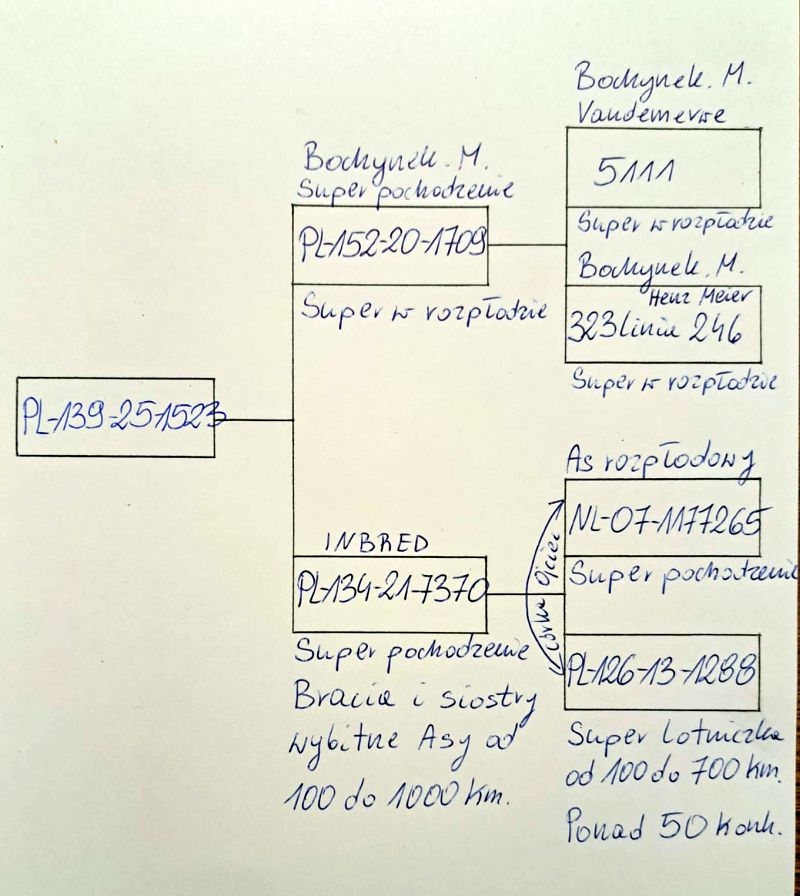 Bochynek. M.
Vandemerwe
5111
Super w rozpłodzie
Bochynek. M.
Super pochodzenie
PL-152-20-1709
Super w rozpłodzie
Bochynek. M.
Henz Meier
323 linia 246
Super w rozpłodzie
PL-139-25-1523
INBRED
PL-134-21-7370
Super pochodzenie
Bracia i siostry
wybitne Asy od
100 do 1000 km.
As rozpłodowy
NL-07-1177265
Super pochodzenie
Ojciec
córka
PL-126-13-1288
Super lotniczka
od 100 do 700 km.
Ponad 50 konk.